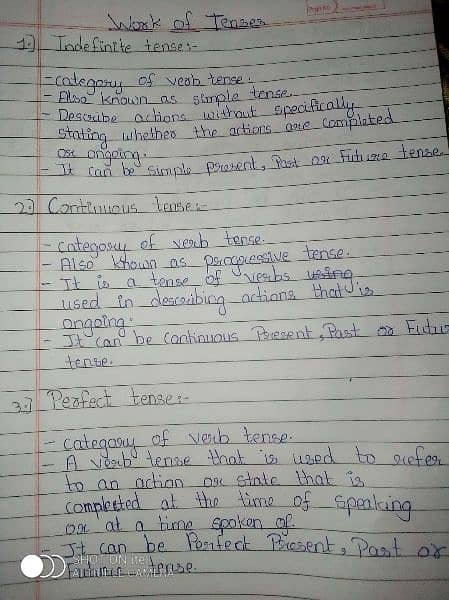 Work of Tenses
1.) Indefinite tense:-
- category of verb tense.
- Also known as simple tense.
- Describe actions without specifically
stating whether the actions are completed
or ongoing.
- It can be simple present, Past or Future tense.
2.) Continuous tense:-
- category of verb tense.
- Also known as progressive tense.
- It is a tense of verbs using
used in describing actions that is
ongoing.
- It can be Continuous Present, Past or Futu
tense.
3.) Perfect tense:-
- category of verb tense.
- A verb tense that is used to refer
to an action or state that is
completed at the time of speaking
or at a time spoken of.
- It can be Perfect Present, Past or
Future tense.
SHOT ON itel
CAMERA